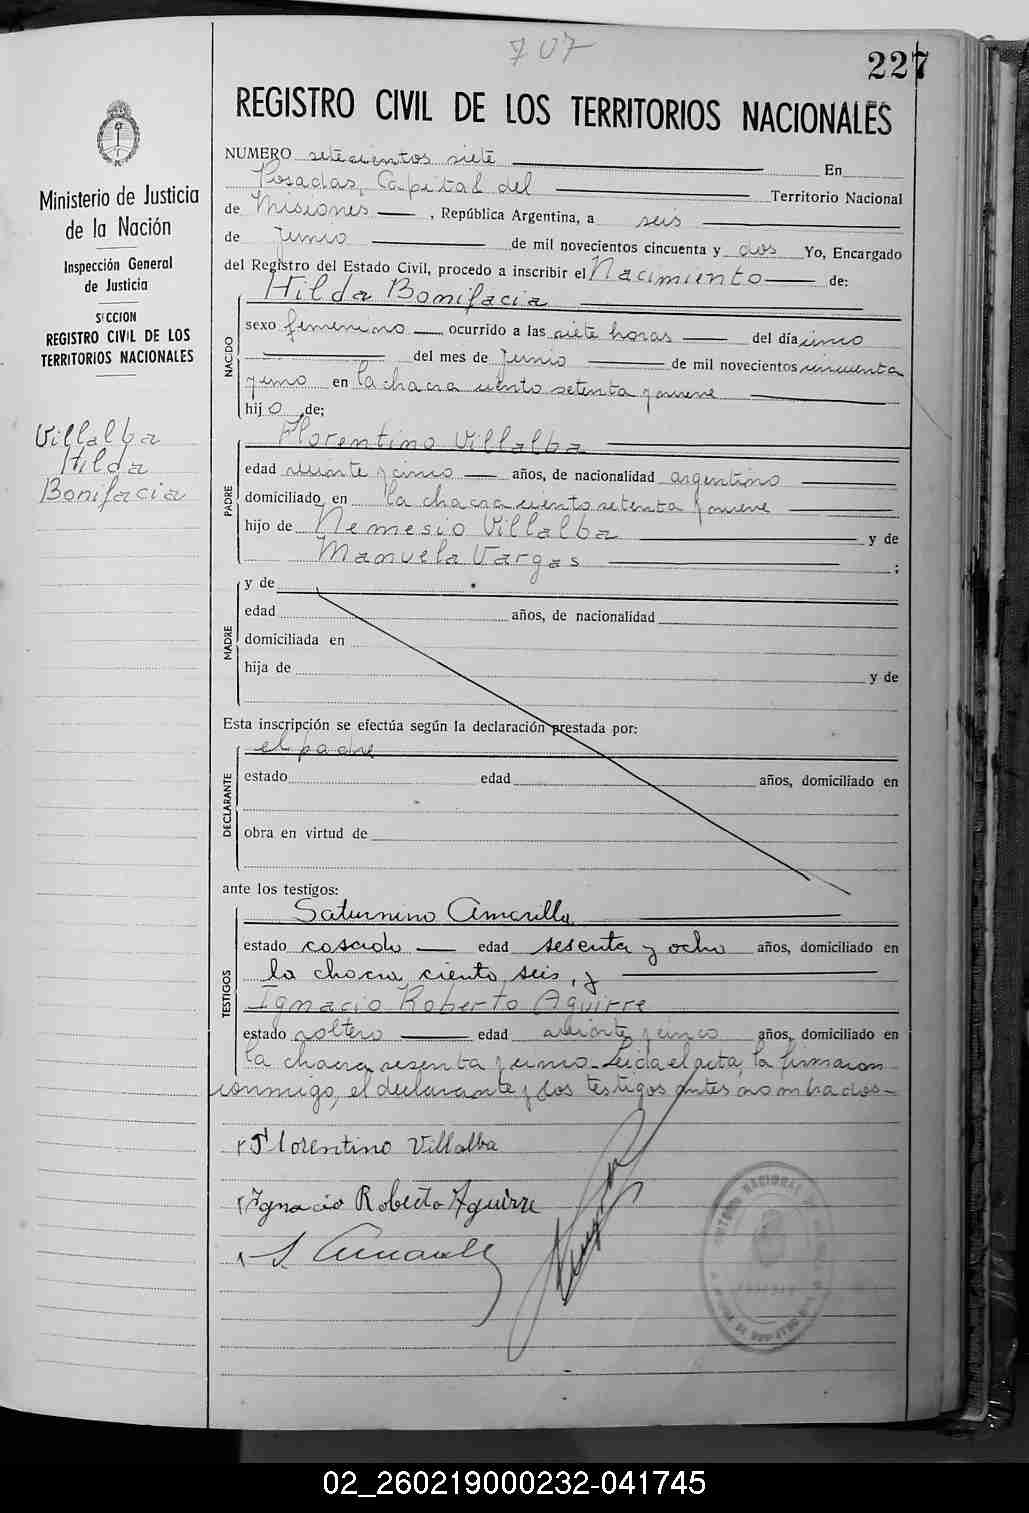 707
227
REGISTRO CIVIL DE LOS TERRITORIOS NACIONALES
Ministerio de Justicia
de la Nación
Inspección General
de Justicia
SECCION
REGISTRO CIVIL DE LOS
TERRITORIOS NACIONALES
Villalba
Hilda
Bonifacia
NUMERO setecientos siete En
Posadas, Capital del Territorio Nacional
de Misiones, República Argentina, a seis
de Junio de mil novecientos cincuenta y dos Yo, Encargado
del Registro del Estado Civil, procedo a inscribir el Nacimiento de:
NACIDO
Hilda Bonifacia
sexo femenino ocurrido a las siete horas del día cinco
del mes de Junio de mil novecientos cincuenta
y uno en la chacra ciento setenta y nueve
hij o de;
PADRE
Florentino Villalba
edad veinte y cinco años, de nacionalidad argentino
domiciliado en la chacra ciento setenta y nueve
hijo de Nemesio Villalba y de
Manuela Vargas ;
MADRE
y de
edad años, de nacionalidad
domiciliada en
hija de y de
Esta inscripción se efectúa según la declaración prestada por:
DECLARANTE
el padre
estado edad años, domiciliado en
obra en virtud de
ante los testigos:
TESTIGOS
Saturnino Amarilla
estado casado edad sesenta y ocho años, domiciliado en
la chacra ciento seis, y
Ignacio Roberto Aguirre
estado soltero edad veinte y cinco años, domiciliado en
la chacra sesenta y uno. Leida el acta, la firmaron
conmigo, el declarante y los testigos antes nombrados
Florentino Villalba
Ignacio Roberto Aguirre
S. Amarilla
02_260219000232-041745